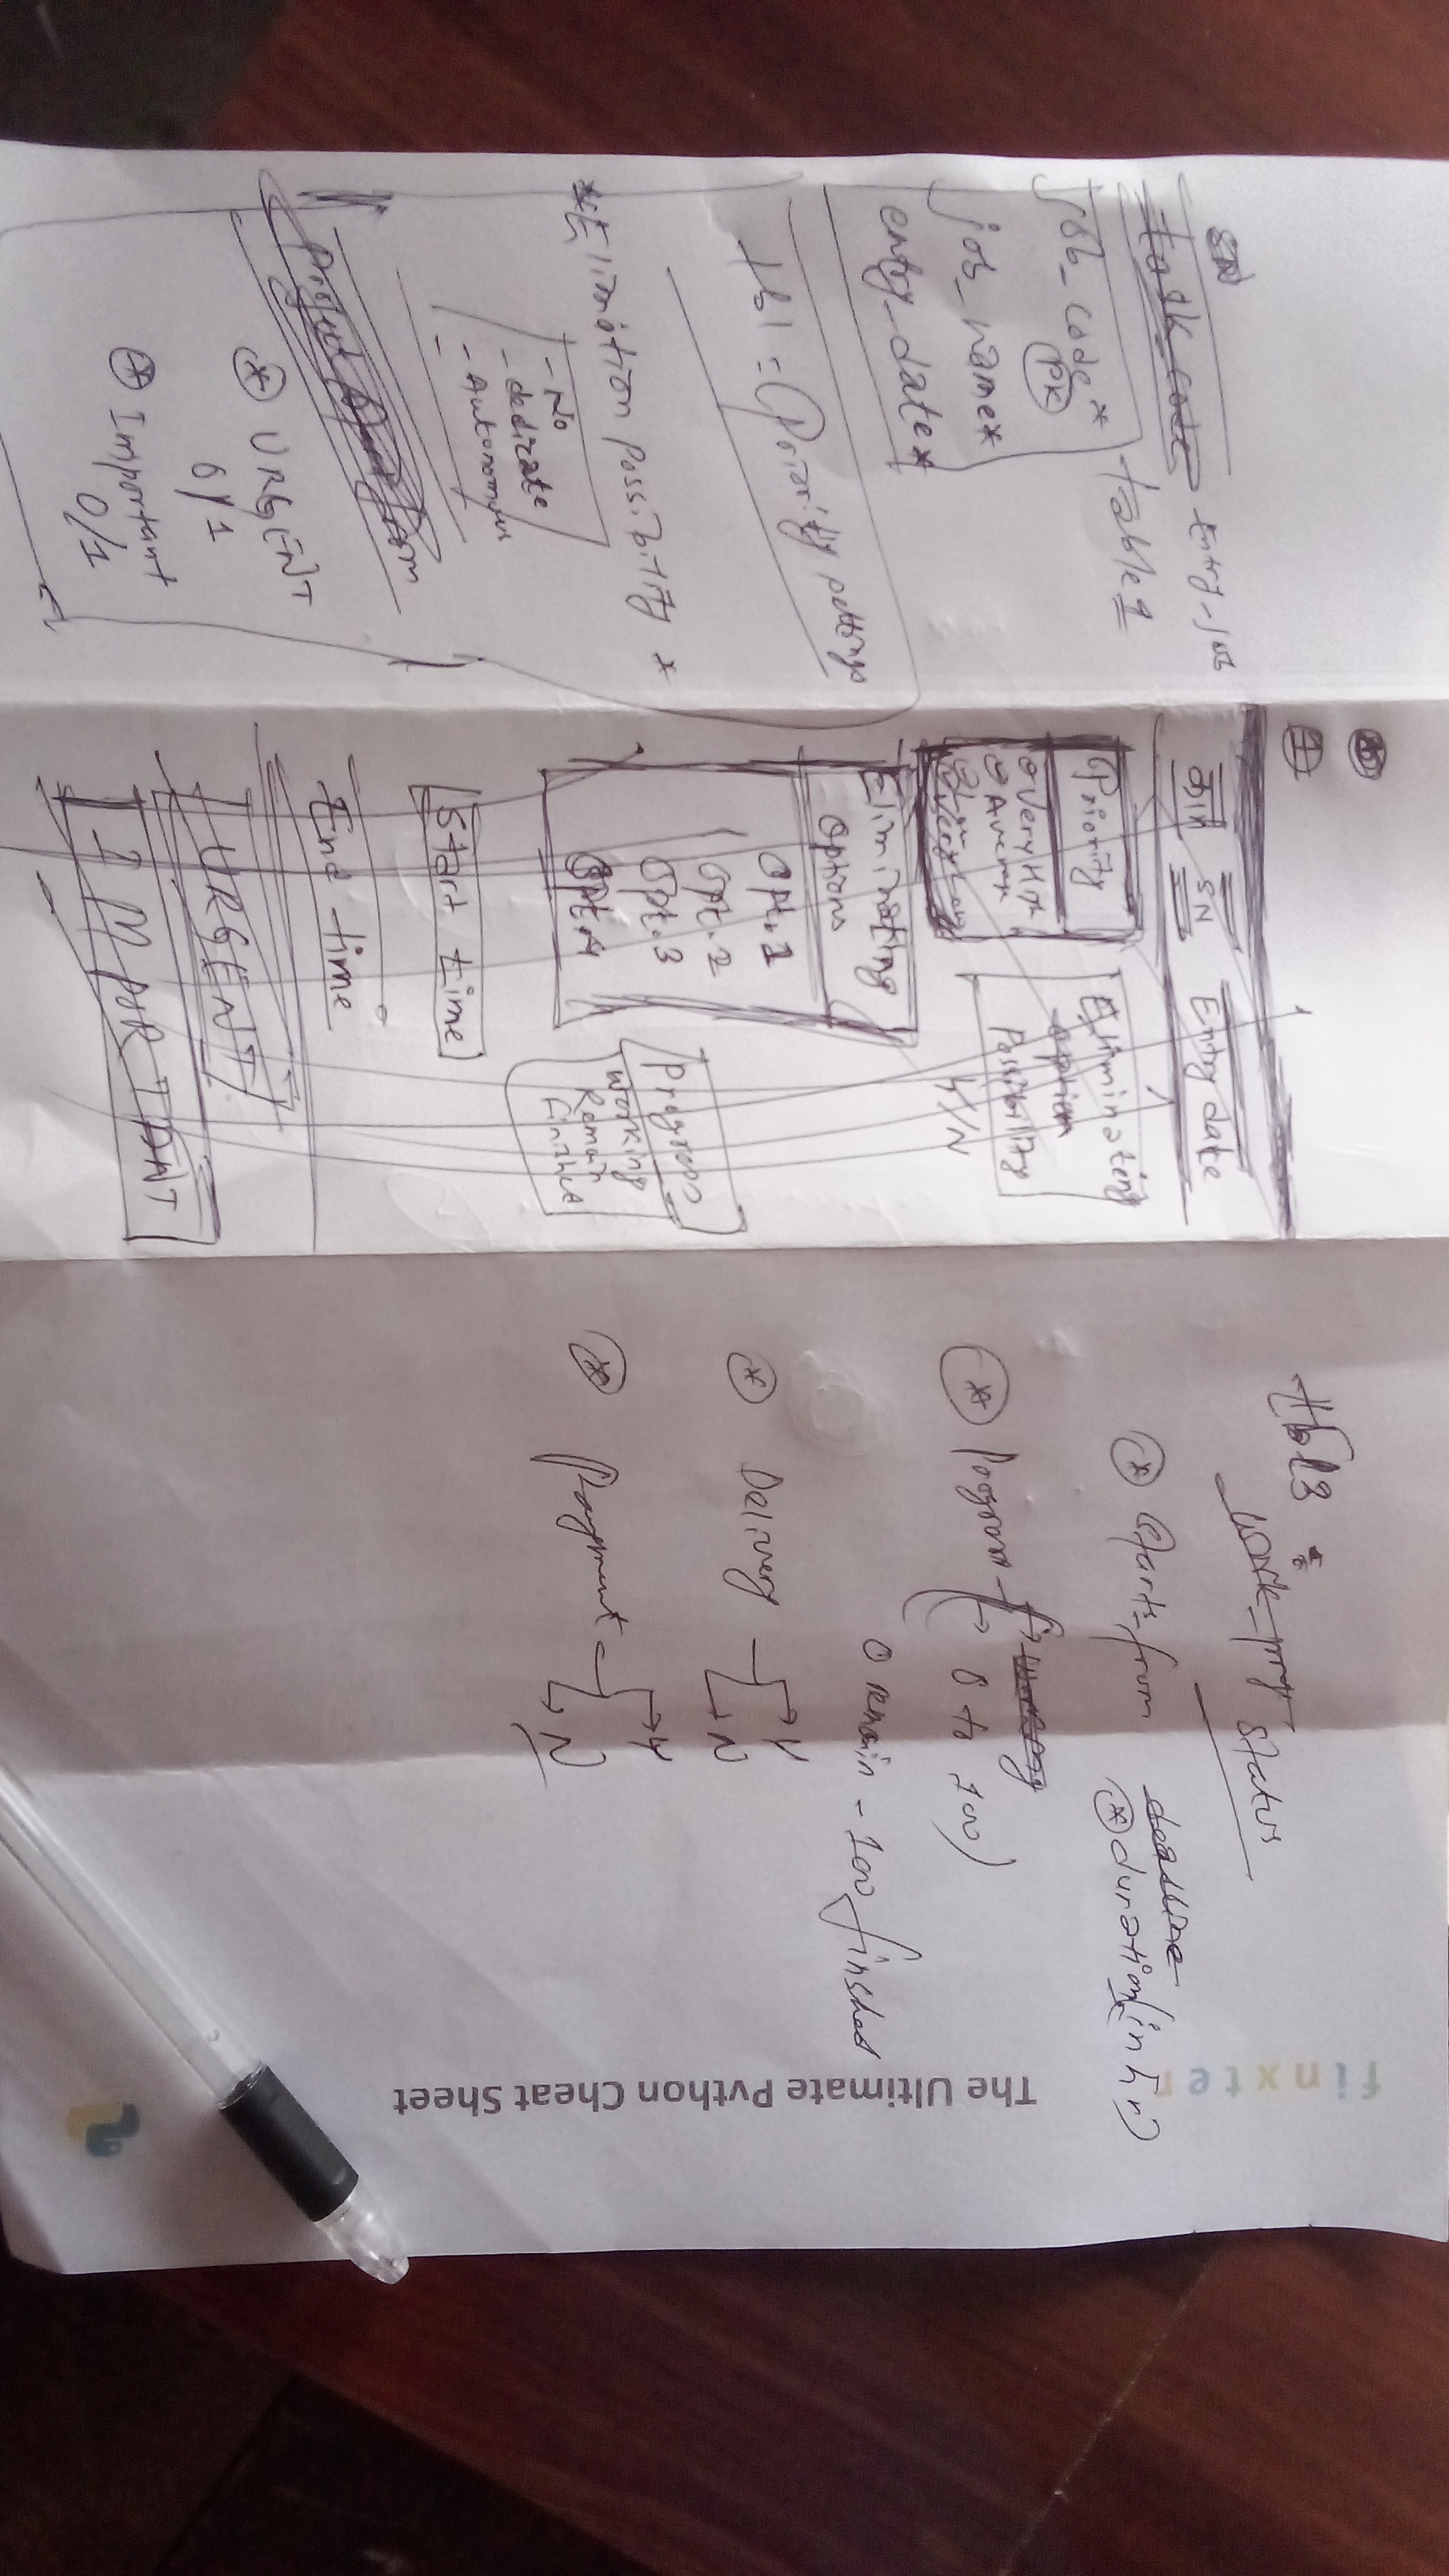 SN
task code entry-job
table 1
job_code*
PK
job_name*
entry_date*
tbl =
*Elimination possibility *
- No
- dedicate
- Autonomous
* URGENT
0/1
* Important
0/1
SN Entry date
Priority
Very High
Average
Eliminating
option
possibility
Y/N
Eliminating
options
opt.1
opt.2
opt.3
opt.4
Progress
Working
Remain
Finished
Start time
End time
URGENT
IMPORTANT
tbl3
work_prog status
deadline
* starts from * duration (in hr)
* progress
0 to 100)
0 remain - 100 finished
* Delivery Y
N
* Payment Y
N
finxter
The Ultimate Python Cheat Sheet